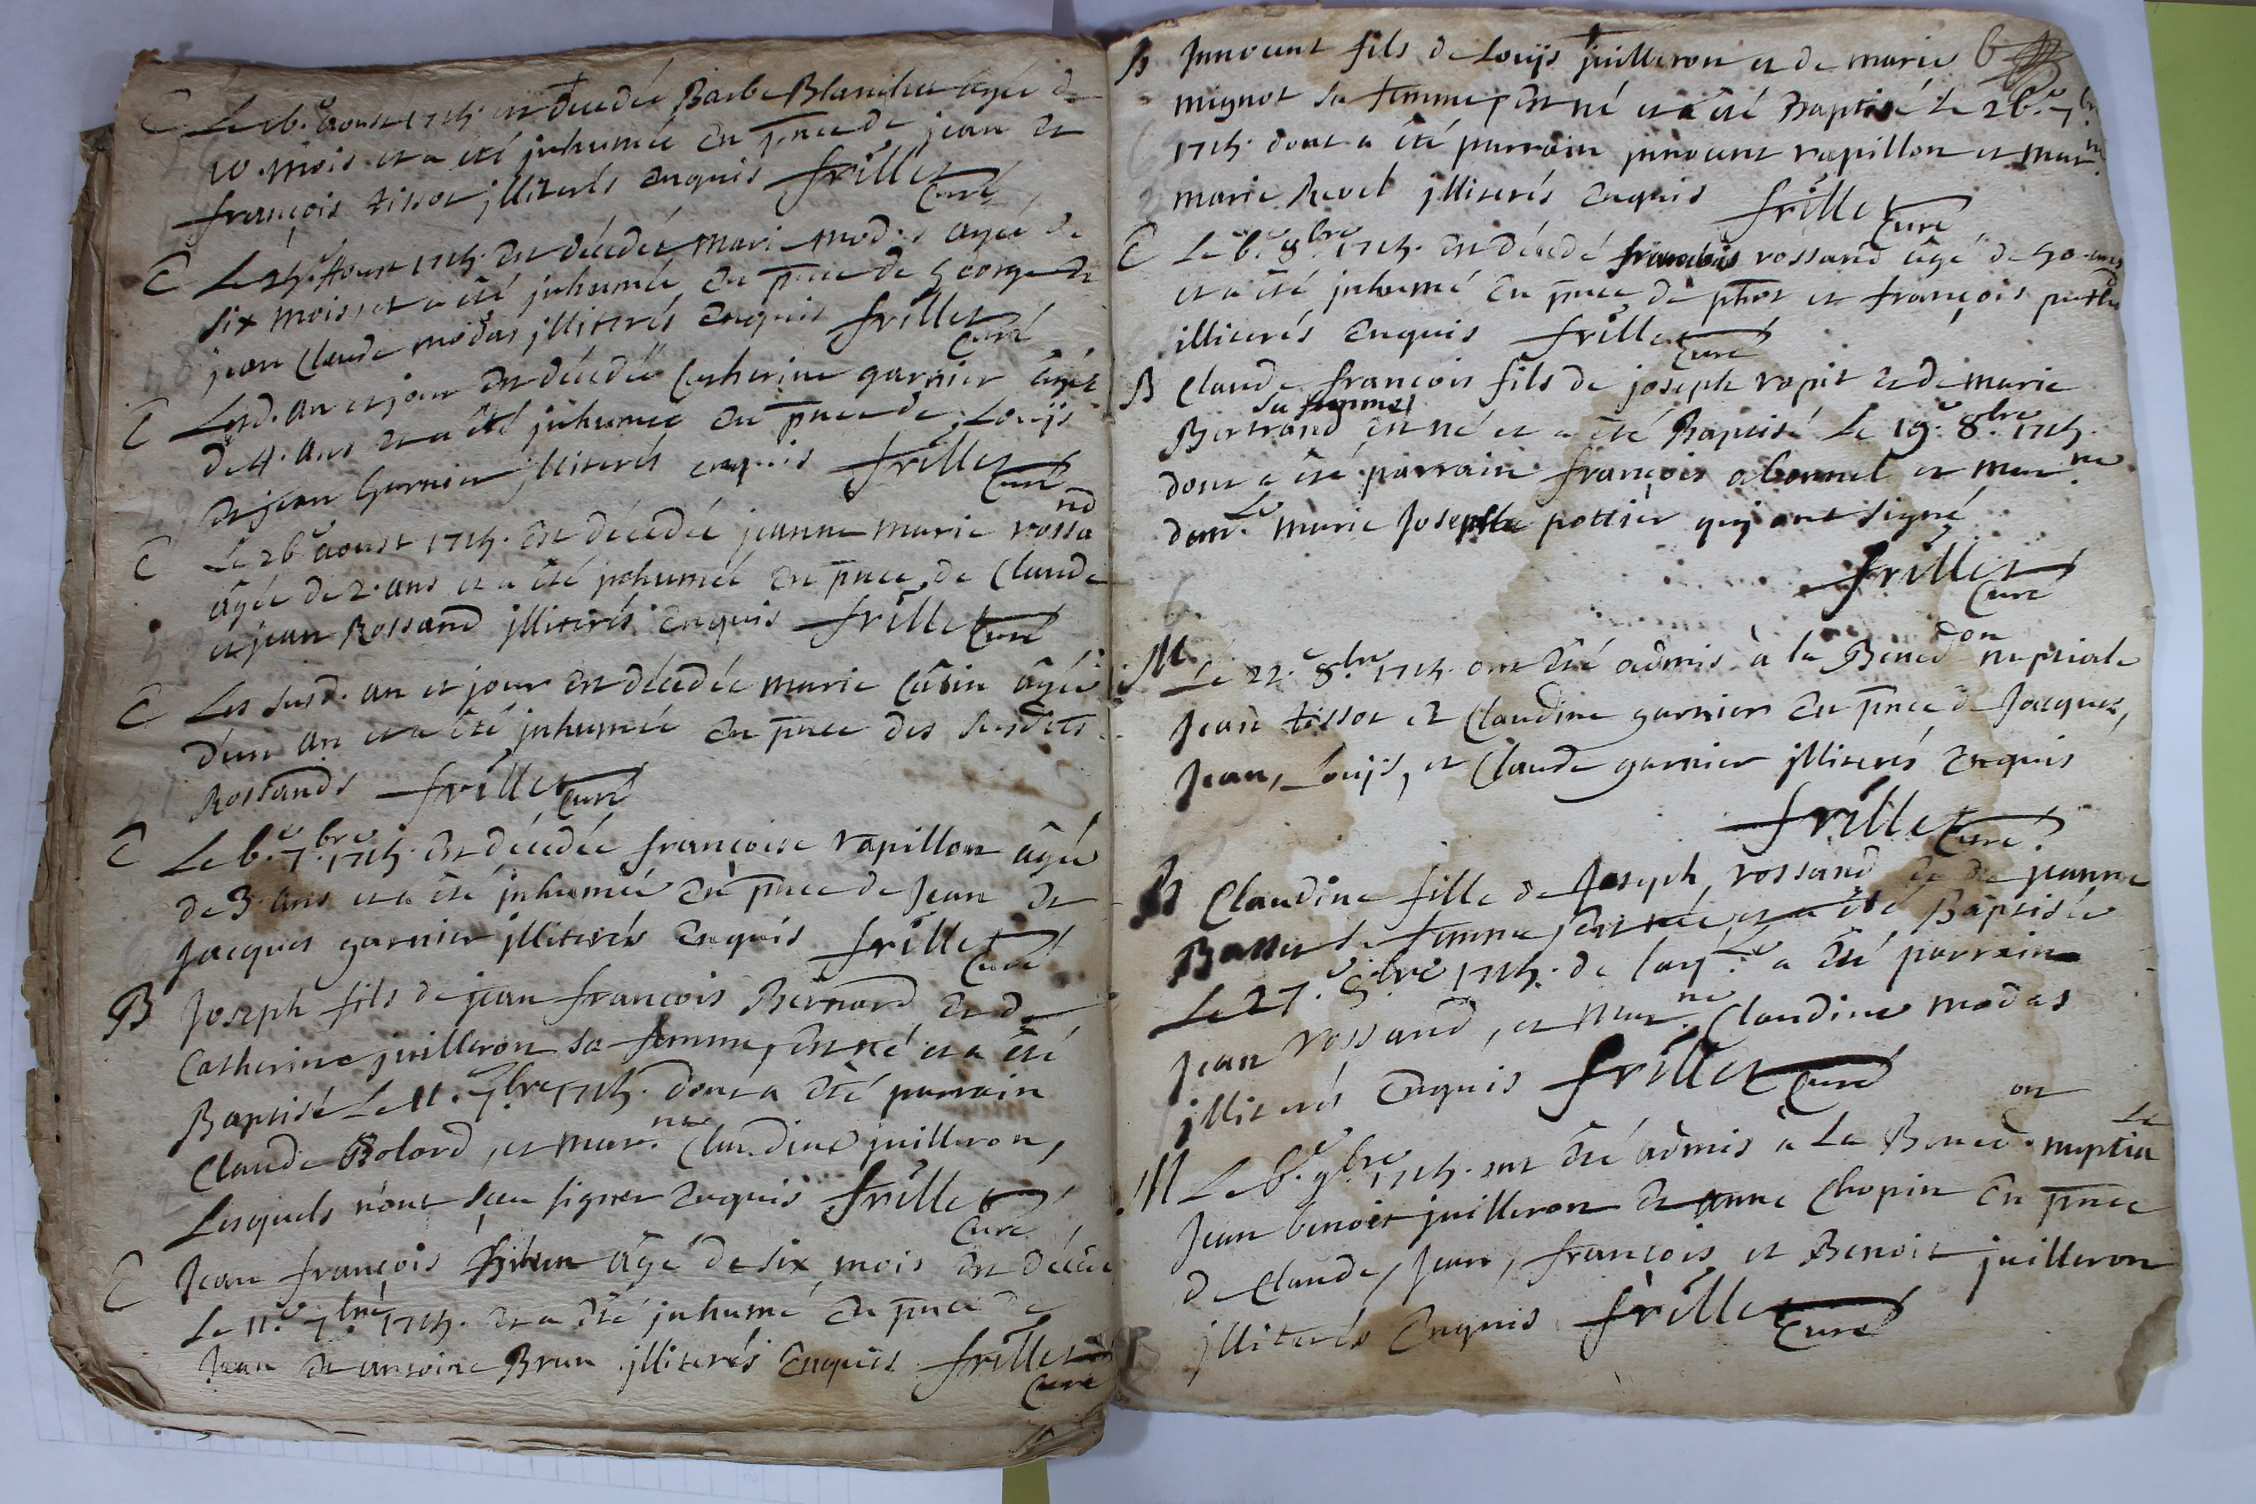 C Le 6.e aoust 1715. est décedée Barbe Blanche agée de
10. mois et a eté inhumée en pnce de jean et
françois tissot illiterés enquis frillet
Curé
C Le 25.e Aoust 1715. est décedée marie modas agée de
six mois, et a été inhumée en pnce de george et
jean Claude modas illiterés enquis frillet
Curé
C Lesd. an et jour est décedée Catherine garnier âgée
de 4. ans et a été inhumée en pnce de Louijs
et jean Garnier illiterés enquis frillet
Curé
C Le 26.e aoust 1715. est décedée jeanne marie rossand
âgée de 2. ans et a été inhumée en pnce de Claude
et jean Rossand illiterés enquis frillet
Curé
C Les susd. an et jour est décedée marie âgée
d'un an et a été inhumée en pnce des susdits
Rossands frillet
Curé
C Le 6.e 7.bre 1715. est décedée françoise rapillon âgée
de 3. ans et a été inhumée en pnce de Jean et
Jacques garnier illiterés enquis frillet
Curé
B Joseph fils de jean francois Bernard et de
Catherine juilleron sa femme, est né et a été
Baptisé Le 11.e 7.bre 1715. dont a été parrain
Claude Bolard, et mar.ne Claudine juilleron,
Lesquels n'ont sçeu signer enquis frillet
Curé
C Jean françois âgé de six mois est décedé
Le 11.e 7.bre 1715. et a été inhumé en pnce de
Jean et antoine Brun illiterés enquis frillet
Curé
B Innocent fils de Louijs juilleron et de marie 6
mignot sa femme, est né et a été Baptisé le 26.e 7.bre
1715. dont a été parrain innocent rapillon et mar.ne
marie Revel illiterés enquis frillet
Curé
C Le 6.e 8.bre 1715. est décedé francois rossand âgé de 50. ans
et a été inhumé en pnce de et françois
illiterés enquis frillet
Curé
B Claude françois fils de joseph ropit et de marie
sa femme
Bertrand est né et a été Baptisé Le 19.e 8.bre 1715.
dont a été parrain françois abonnel et mar.ne
dem.le marie Josephte pottier qui ont signé
frillet
Curé
M Le 22.e 8.bre 1715. ont été admis à la Bened.on nuptiale
Jean tissot et Claudine garnier en pnce de Jacques,
Jean, Louijs, et Claude garnier illiterés enquis
frillet
Curé
B Claudine fille de Joseph rossand et de jeanne
sa femme est née et a été Baptisée
Le 27.e 8.bre 1715. de laq.le a été parrain
Jean rossand, et mar.ne Claudine modas
illiterés enquis frillet
Curé
M Le 6.e 9.bre 1715. ont été admis à La Bened.on nuptiale
Jean benoit juilleron et anne Chopin en pnce
de Claude, Jean, françois, et Benoit juilleron
illiterés enquis frillet
Curé